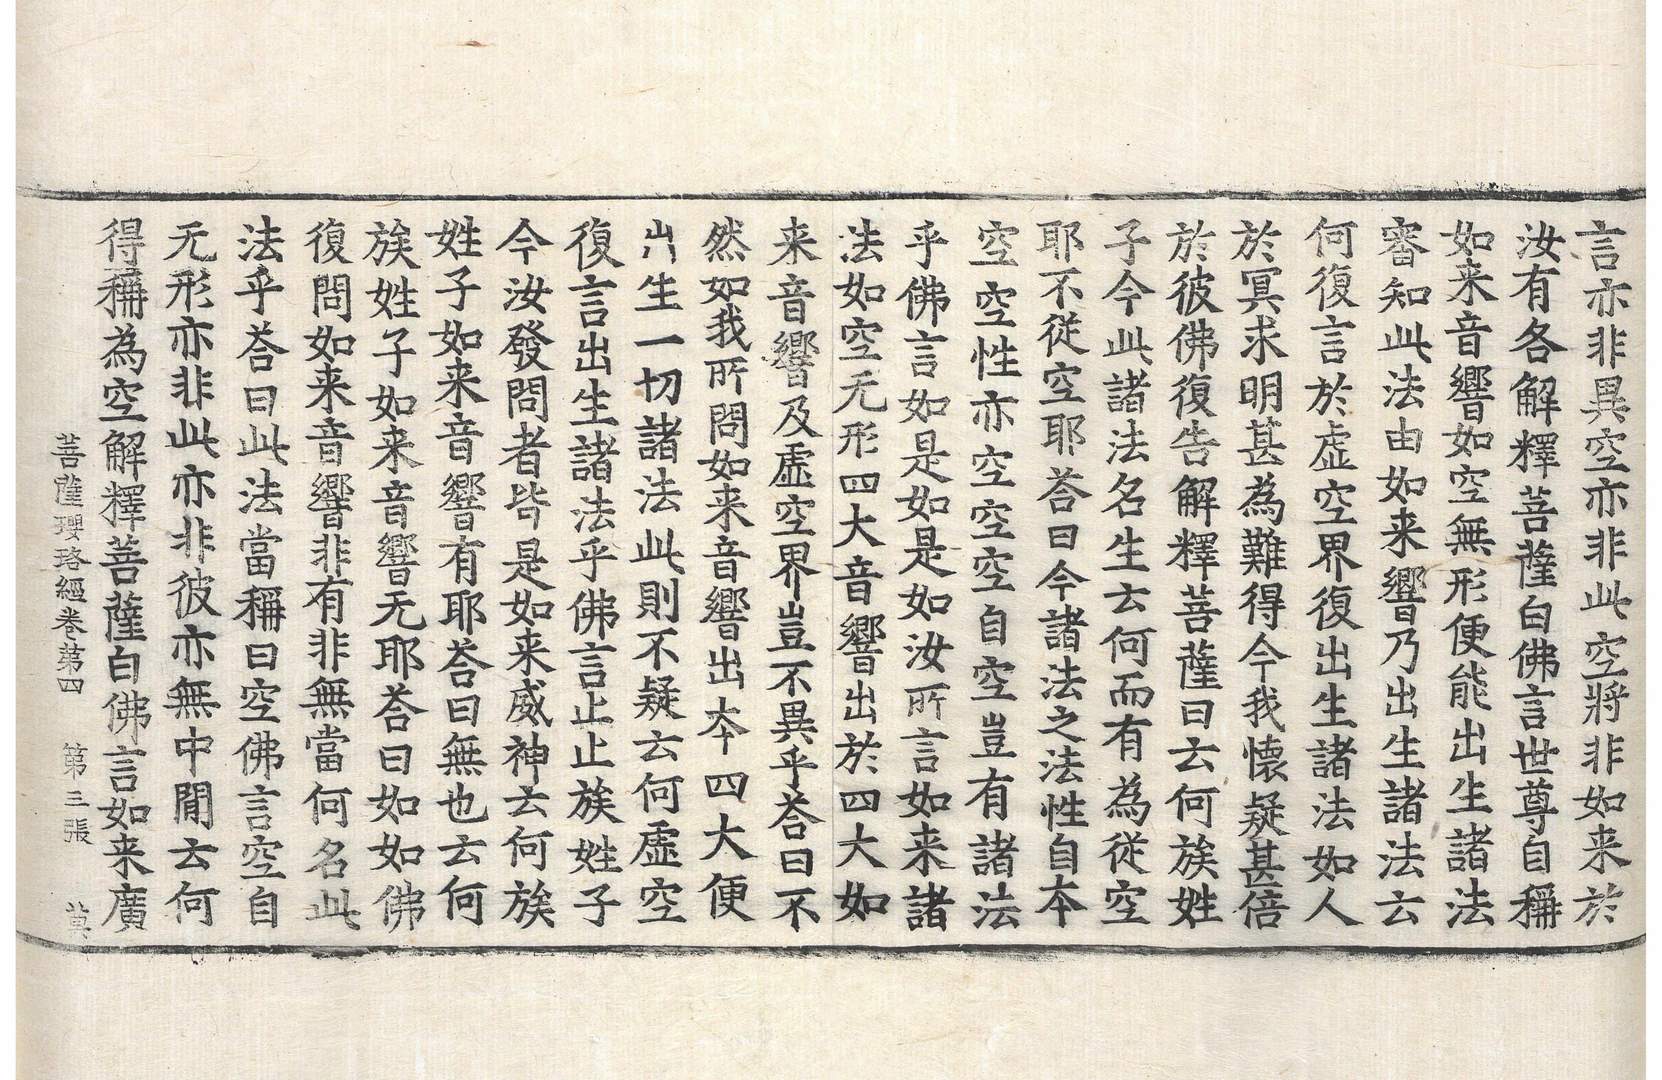 言亦非異空亦非此空將非如来於
汝有各解釋菩薩白佛言世尊自稱
如来音響如空無形便能出生諸法
審知此法由如来響乃出生諸法云
何復言於虛空界復出生諸法如人
於冥求明甚為難得今我懷疑甚倍
於彼佛復告解釋菩薩曰云何族姓
子今此諸法名生云何而有為從空
耶不從空耶荅曰今諸法之法性自本
空空性亦空空空自空豈有諸法
乎佛言如是如是如汝所言如来諸
法如空无形四大音響出於四大如
来音響及虛空界豈不異乎荅曰不
然如我所問如来音響出本四大便
出生一切諸法此則不疑云何虛空
復言出生諸法乎佛言止止族姓子
今汝發問者皆是如来威神云何族
姓子如来音響有耶荅曰無也云何
族姓子如来音響无耶荅曰如如佛
復問如来音響非有非無當何名此
法乎荅曰此法當稱曰空佛言空自
无形亦非此亦非彼亦無中間云何
得稱為空解釋菩薩白佛言如来廣
菩薩瓔珞經卷第四 第三張